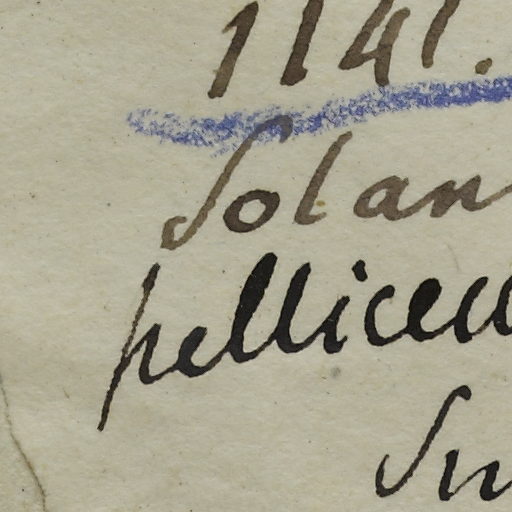 1141.
Solan
pelliceu
Su